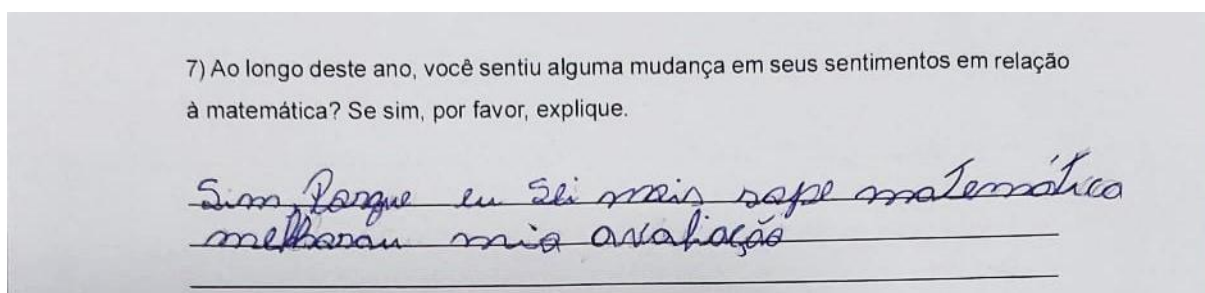 7) Ao longo deste ano, você sentiu alguma mudança em seus sentimentos em relação
à matemática? Se sim, por favor, explique.
Sim, Porque eu Sei mais sope matemática
melhorou mia avaliação